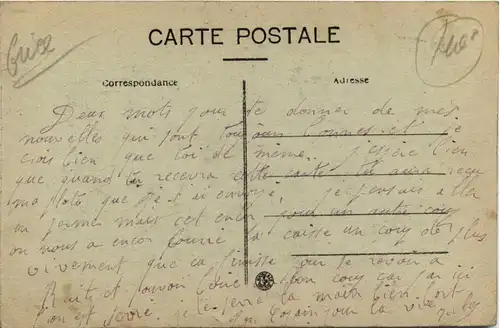 Grise
CARTE POSTALE
Correspondance
Adresse
Deux mots pour te donner de mes
nouvelles qui sont toujours bonnes et je
crois bien que toi de même. J'espère bien
que quand tu recevra cette carte tu aura reçu
ma photo que je t'ai envoyé, je pensais aller
en perme mais cet encor pour un autre coup
on nous a encor bourré la caisse un coup de plus
vivement que ca finisse que je revoir a
et pouvoir boire bon coup car ici
on est serré. je te serre la main bien fort
cousin pour la vie